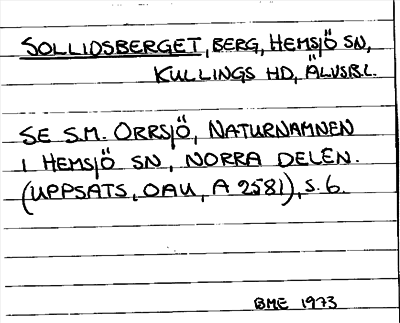 SOLLIDSBERGET, BERG, HEMSJÖ SN,
KULLINGS HD, ÄLVSB.L.
SE S.M. ORRSJÖ, NATURNAMNEN
I HEMSJÖ SN, NORRA DELEN.
(UPPSATS, OAU, A 2581), S. 6.
BME 1973